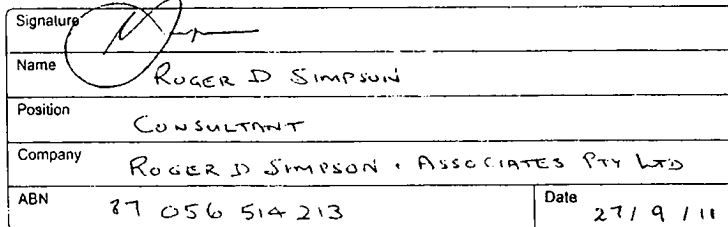 Signature
Name ROGER D SIMPSON
Position CONSULTANT
Company ROGER D SIMPSON + ASSOCIATES PTY LTD
ABN 87 056 514 213 Date 27/9/11